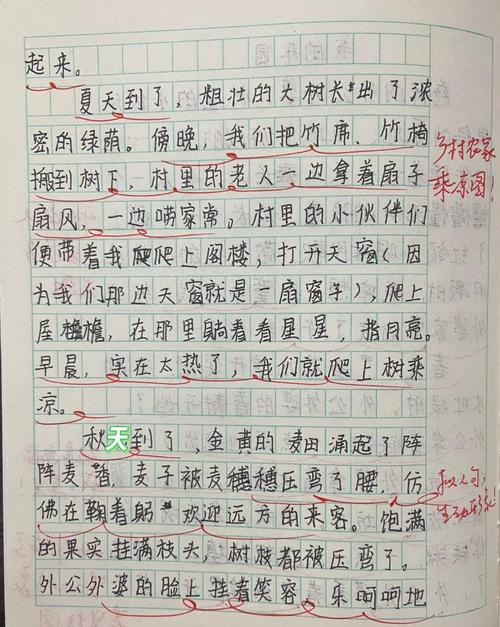 起来。
夏天到了，粗壮的大树长出了浓
密的绿荫。傍晚，我们把竹席、竹椅
搬到树下，村里的老人一边拿着扇子
扇风，一边唠家常。村里的小伙伴们
便带着我爬爬上阁楼，打开天窗（因
为我们那边天窗就是一扇窗子），爬上
屋檐，在那里躺着看星星，指月亮。
早晨，实在太热了，我们就爬上树乘
凉。
秋天到了，金黄的麦田涌起了阵
阵麦香，麦子被麦穗穗压弯了腰，仿
佛在鞠着躬欢迎远方的来客。饱满
的果实挂满枝头，树枝都被压弯了。
外公外婆的脸上挂着笑容，乐呵呵地
乡村农家
乘凉图！
拟人句，
生动形象